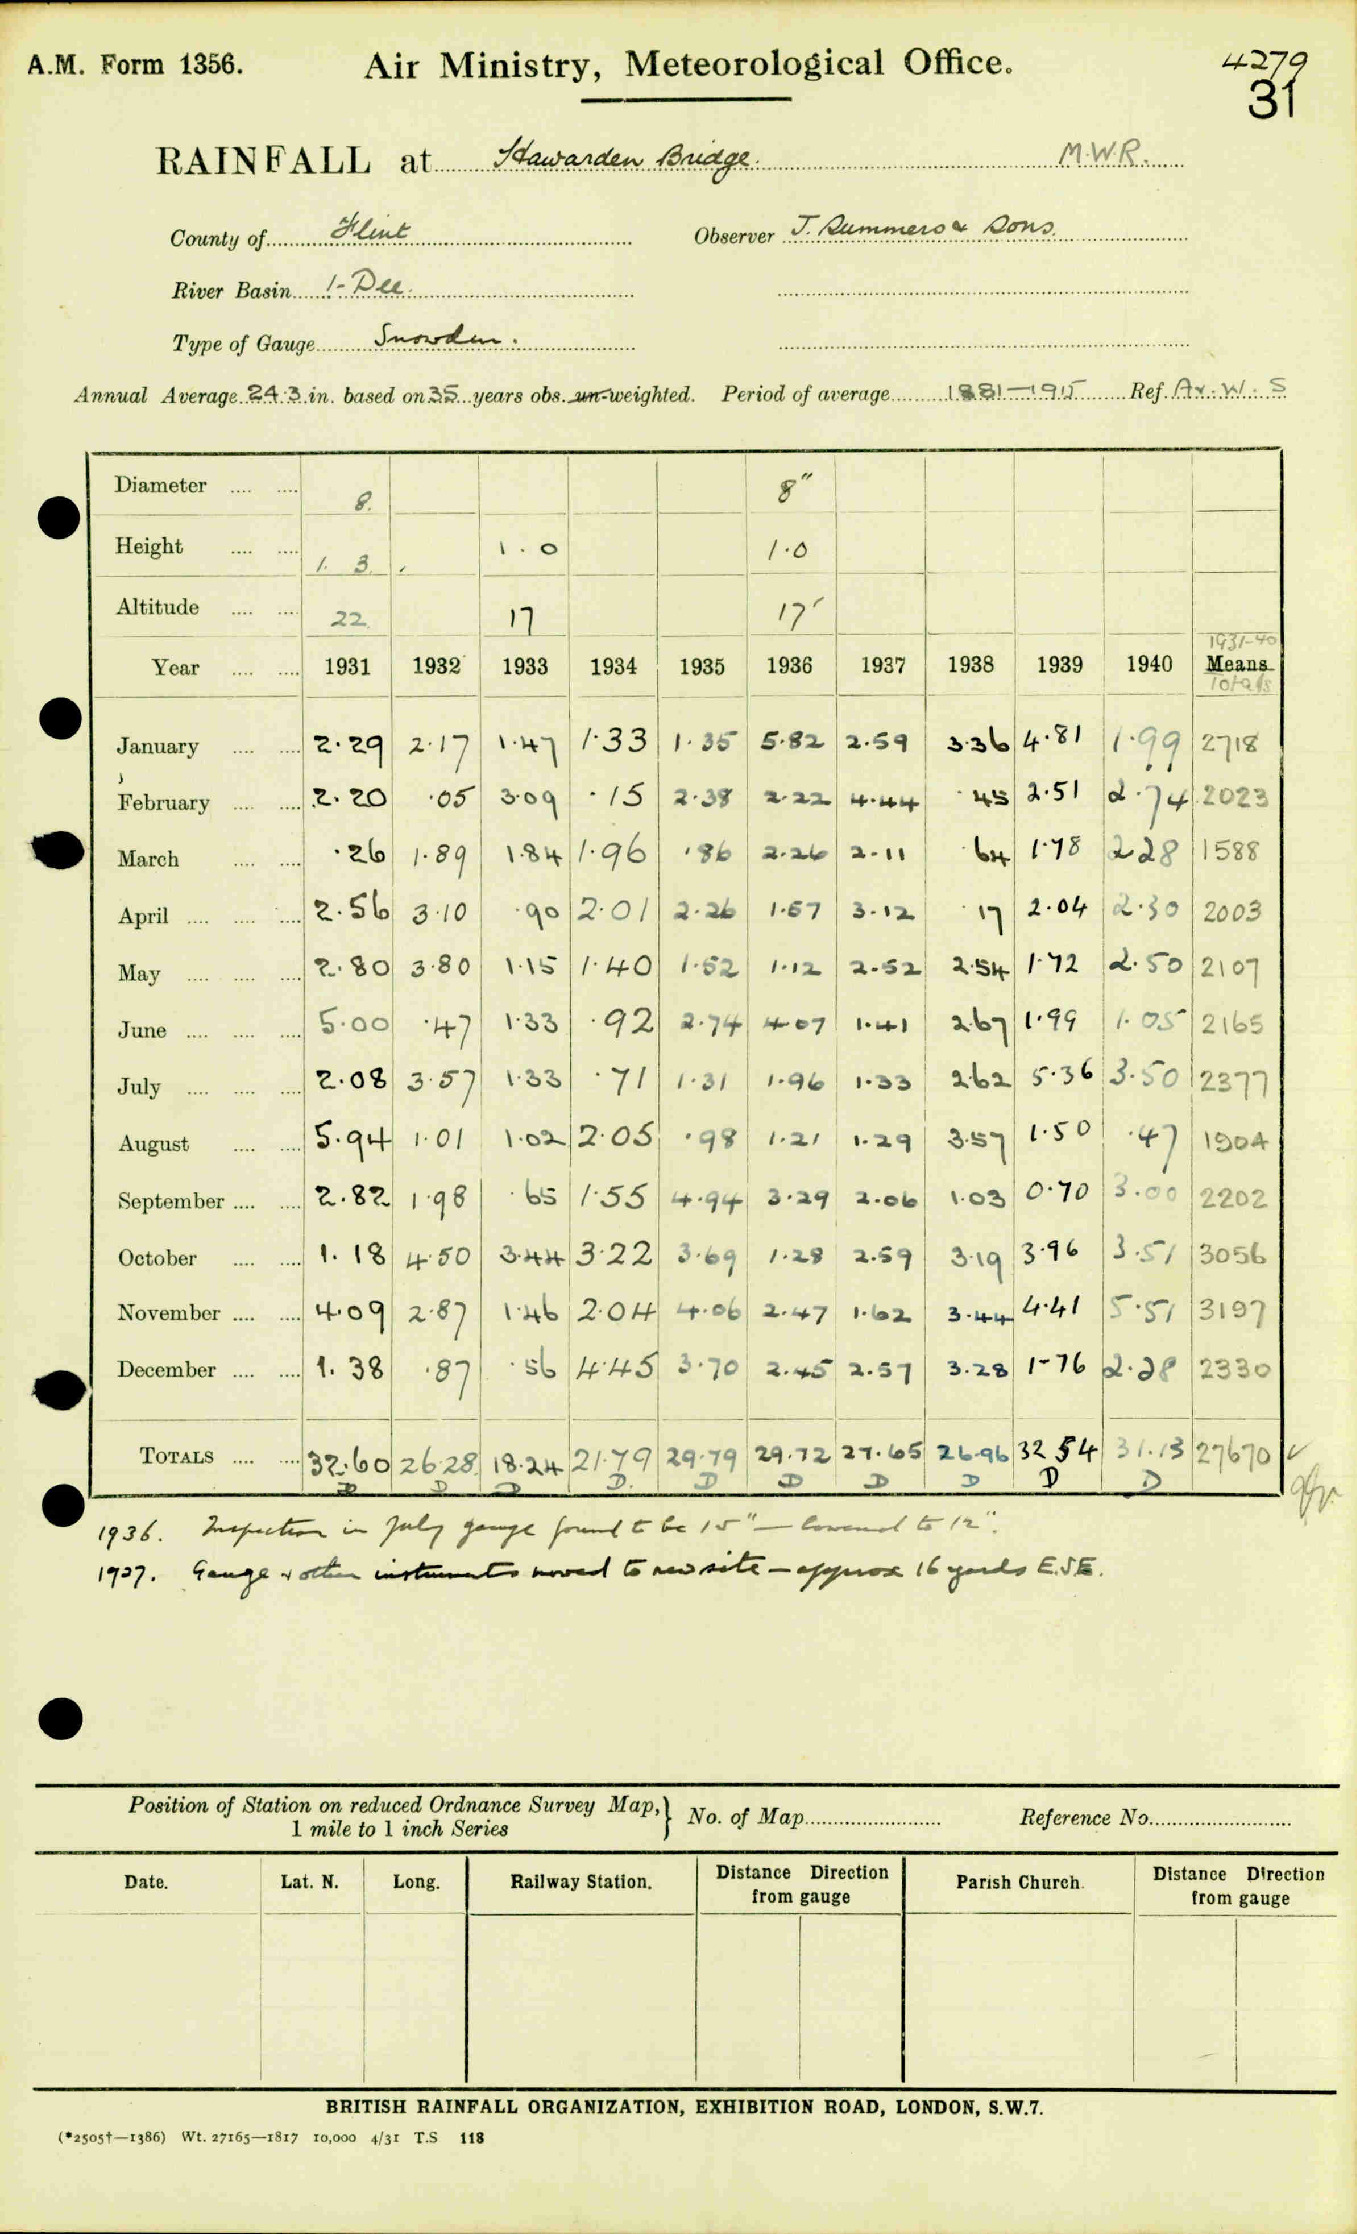 A.M. Form 1356. Air Ministry, Meteorological Office. 4279
31
RAINFALL at Hawarden Bridge. M.W.R.
County of Flint Observer J. Summers & Sons.
River Basin 1-Dee.
Type of Gauge Snowdon.
Annual Average 24.3 in. based on 35 years obs. un-weighted. Period of average 1881-1915 Ref. Av. W. S
Diameter 8. 8"
Height 1. 3. 1.0 1.0
Altitude 22 17 17'
1931-40
Year 1931 1932 1933 1934 1935 1936 1937 1938 1939 1940 Means
Totals
January 2.29 2.17 1.47 1.33 1.35 5.82 2.59 3.36 4.81 1.99 2718
February 2.20 .05 3.09 .15 2.38 2.22 4.44 .45 2.51 2.74 2023
March .26 1.89 1.84 1.96 .86 2.26 2.11 .64 1.78 2.28 1588
April 2.56 3.10 .90 2.01 2.26 1.57 3.12 .17 2.04 2.30 2003
May 2.80 3.80 1.15 1.40 1.52 1.12 2.52 2.54 1.72 2.50 2107
June 5.00 .47 1.33 .92 2.74 4.07 1.41 2.67 1.99 1.05 2165
July 2.08 3.57 1.33 .71 1.31 1.96 1.33 2.62 5.36 3.50 2377
August 5.94 1.01 1.02 2.05 .98 1.21 1.29 3.57 1.50 .47 1904
September 2.82 1.98 .65 1.55 4.94 3.29 2.06 1.03 0.70 3.00 2202
October 1.18 4.50 3.44 3.22 3.69 1.28 2.59 3.19 3.96 3.51 3056
November 4.09 2.87 1.46 2.04 4.06 2.47 1.62 3.44 4.41 5.51 3197
December 1.38 .87 .56 4.45 3.70 2.45 2.57 3.28 1.76 2.28 2330
TOTALS 32.60 26.28 18.24 21.79 29.79 29.72 27.65 26.96 32.54 31.13 27670
D D D D. D D D D D D
1936. Inspection in July gauge found to be 15" – lowered to 12".
1937. Gauge & other instruments moved to new site – approx 16 yards E.S.E.
Position of Station on reduced Ordnance Survey Map, 1 mile to 1 inch Series } No. of Map Reference No.
Date. Lat. N. Long. Railway Station. Distance Direction from gauge Parish Church. Distance Direction from gauge
BRITISH RAINFALL ORGANIZATION, EXHIBITION ROAD, LONDON, S.W.7.
(*2505†—1386) Wt. 27165—1817 10,000 4/31 T.S 118